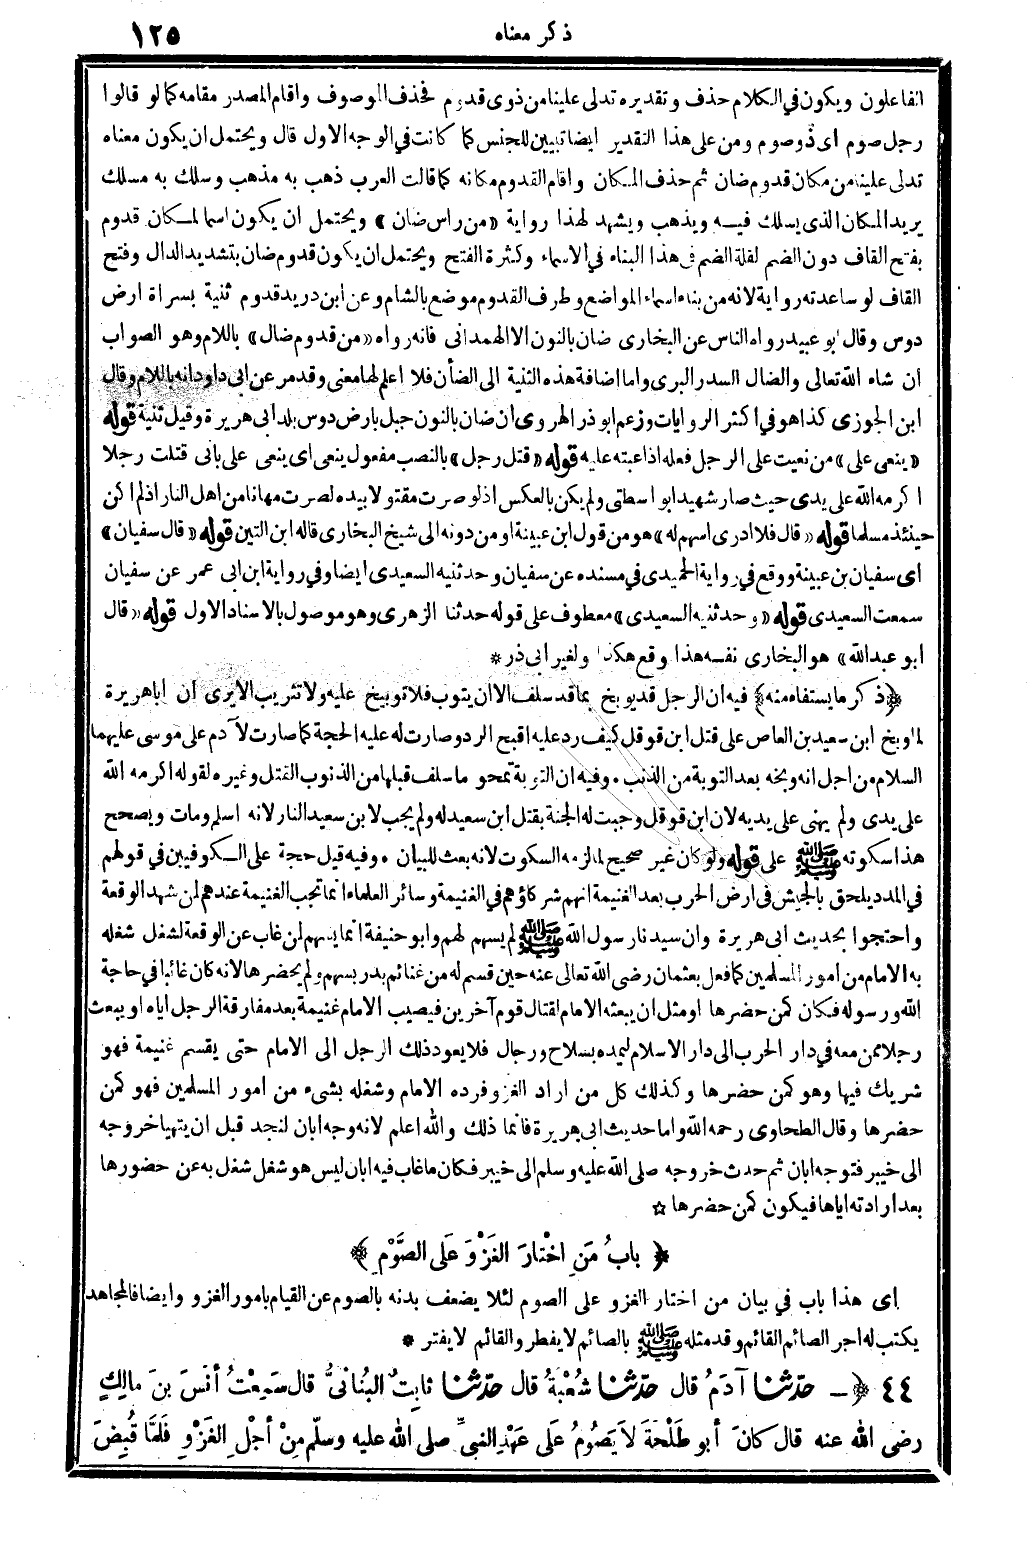 ذكر معناه ١٢٥
الفاعلون ويكون في الكلام حذف وتقديره تدلى علينا من ذوى قدوم فحذف الموصوف واقام المصدر مقامه كما لو قالوا
رجل صوم اى ذو صوم ومن على هذا التقدير ايضا تبيين للجنس كما كانت في الوجه الاول قال ويحتمل ان يكون معناه
تدلى علينا من مكان قدوم ضان ثم حذف المكان واقام القدوم مكانه كما قالت العرب ذهب به مذهب وسلك به مسلك
يريد المكان الذى يسلك فيه ويذهب ويشهد لهذا رواية «من راس ضان» ويحتمل ان يكون اسما لمكان قدوم
بفتح القاف دون الضم لقلة الضم في هذا البناء في الاسماء وكثرة الفتح ويحتمل ان يكون قدوم ضان بتشديد الدال وفتح
القاف لو ساعدته رواية لانه من بناء اسماء المواضع وطرف القدوم موضع بالشام وعن ابن دريد قدوم ثنية بسراة ارض
دوس وقال ابو عبيد رواه الناس عن البخارى ضان بالنون الا الهمدانى فانه رواه «من قدوم ضال» باللام وهو الصواب
ان شاء الله تعالى والضال السدر البرى واما اضافة هذه الثنية الى الضأن فلا اعلم لها معنى وقد مر عن ابى داود انه باللام وقال
ابن الجوزى كذا هو في اكثر الروايات وزعم ابو ذر الهروى ان ضان بالنون جبل بارض دوس بلد ابى هريرة وقيل ثنية قوله
«ينعى على» من نعيت على الرجل فعله اذا عبته عليه قوله «قتل رجل» بالنصب مفعول ينعى اى ينعى على بانى قتلت رجلا
اكرمه الله على يدى حيث صار شهيدا بواسطتى ولم يكن بالعكس اذ لو صرت مقتولا بيده لصرت مهانا من اهل النار اذ لم اكن
حينئذ مسلما قوله «قال فلا ادرى اسهم له» هو من قول ابن عيينة او من دونه الى شيخ البخارى قاله ابن التين قوله «قال سفيان»
اى سفيان بن عيينة ووقع في رواية الحميدى في مسنده عن سفيان وحدثنيه السعيدى ايضا وفي رواية ابن ابى عمر عن سفيان
سمعت السعيدى قوله «وحدثنيه السعيدى» معطوف على قوله حدثنا الزهرى وهو موصول بالاسناد الاول قوله «قال
ابو عبد الله» هو البخارى نفسه هذا وقع هكذا لغير ابى ذر *
﴿ذكر ما يستفاد منه﴾ فيه ان الرجل قد يوبخ بما قد سلف الا ان يتوب فلا توبيخ عليه ولا تثريب الا يرى ان ابا هريرة
لما وبخ ابن سعيد بن العاص على قتل ابن قوقل كيف رد عليه اقبح الرد وصارت له عليه الحجة كما صارت لآدم على موسى عليهما
السلام من اجل انه وبخه بعد التوبة من الذنب . وفيه ان التوبة تمحو ما سلف قبلها من الذنوب القتل وغيره لقوله اكرمه الله
على يدى ولم يهنى على يديه لان ابن قوقل وجبت له الجنة بقتل ابن سعيد له ولم يجب لابن سعيد النار لانه اسلم ومات ويصحح
هذا سكوته ﷺ على قوله ولو كان غير صحيح لما لزمه السكوت لانه بعث للبيان . وفيه قيل حجة على الكوفيين في قولهم
في المدد يلحق بالجيش في ارض الحرب بعد الغنيمة انهم شركاؤهم في الغنيمة وسائر العلماء انما تجب الغنيمة عندهم لمن شهد الوقعة
واحتجوا بحديث ابى هريرة وان سيدنا رسول الله ﷺ لم يسهم لهم وابو حنيفة انما يسهم لمن غاب عن الوقعة لشغل شغله
به الامام من امور المسلمين كما فعل بعثمان رضى الله تعالى عنه حين قسم له من غنائم بدر بسهم ولم يحضرها لانه كان غائبا في حاجة
الله ورسوله فكان كمن حضرها او مثل ان يبعثه الامام لقتال قوم آخرين فيصيب الامام غنيمة بعد مفارقة الرجل اياه او يبعث
رجلا ممن معه في دار الحرب الى دار الاسلام ليمده بسلاح ورجال فلا يعود ذلك الرجل الى الامام حتى يقسم غنيمة فهو
شريك فيها وهو كمن حضرها وكذلك كل من اراد الغزو فرده الامام وشغله بشىء من امور المسلمين فهو كمن
حضرها وقال الطحاوى رحمه الله واما حديث ابى هريرة فانما ذلك والله اعلم لانه وجه ابان لنجد قبل ان يتهيا خروجه
الى خيبر فتوجه ابان ثم حدث خروجه صلى الله عليه وسلم الى خيبر فكان ما غاب فيه ابان ليس هو شغل شغل به عن حضورها
بعد ارادته اياها فيكون كمن حضرها ☆
﴿ بابُ مَنِ اخْتارَ الغَزْوَ عَلَى الصَّوْمِ ﴾
اى هذا باب في بيان من اختار الغزو على الصوم لئلا يضعف بدنه بالصوم عن القيام بامور الغزو وايضا فالمجاهد
يكتب له اجر الصائم القائم وقد مثله ﷺ بالصائم لا يفطر والقائم لا يفتر *
٤٤ ﴿ ـ حَدَّثَنا آدَمُ قال حَدَّثَنا شُعْبَةُ قال حَدَّثَنا ثابِتٌ البُنانىُّ قال سَمِعْتُ أنَسَ بنَ مالِكٍ
رضى الله عنه قال كانَ أبو طَلْحَةَ لاَ يَصُومُ عَلَى عَهْدِ النبىِّ صلى الله عليه وسلّم مِنْ أجْلِ الغَزْوِ فَلَمَّا قُبِضَ